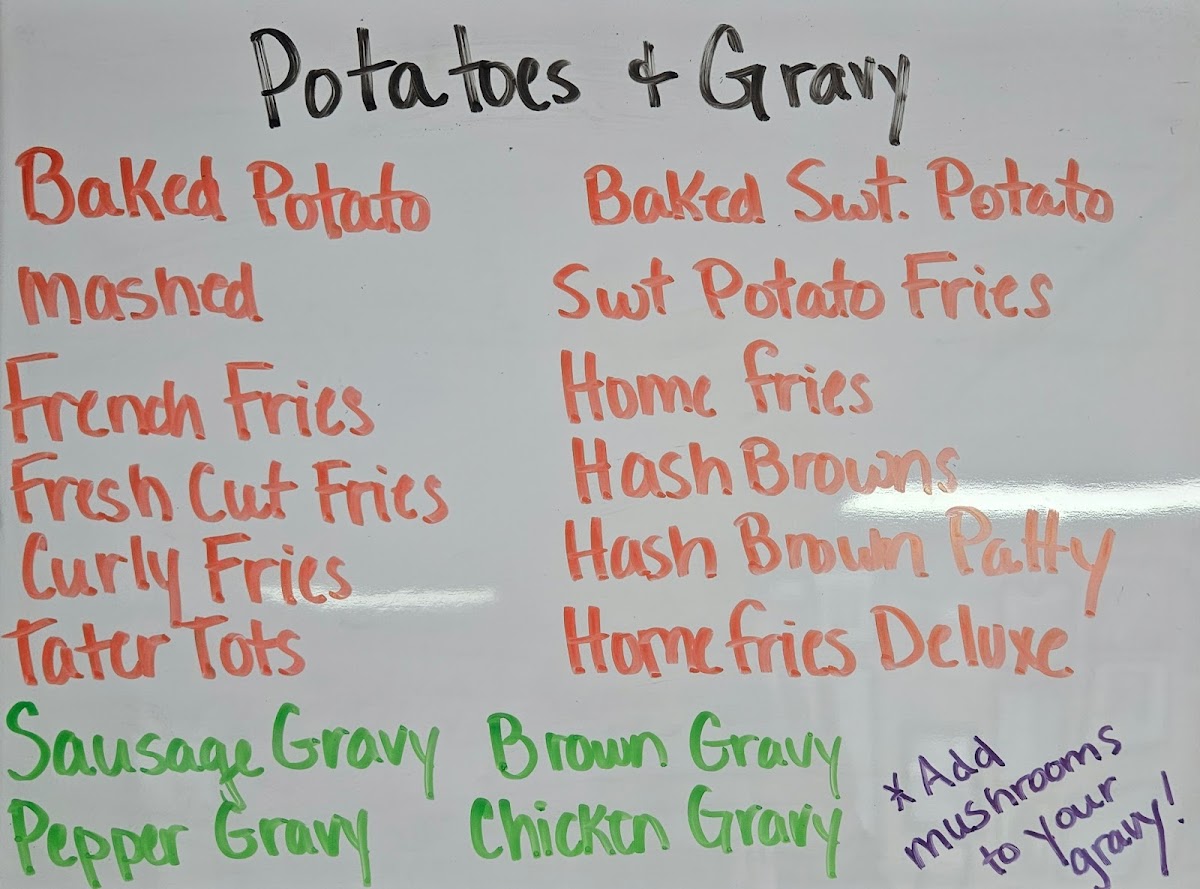 Potatoes & Gravy
Baked Potato
Mashed
French Fries
Fresh Cut Fries
Curly Fries
Tater Tots
Baked Swt. Potato
Swt Potato Fries
Home fries
Hash Browns
Hash Brown Patty
Home fries Deluxe
Sausage Gravy
Pepper Gravy
Brown Gravy
Chicken Gravy
*Add
mushrooms
to your
gravy!